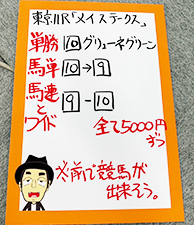 東京11R「メイステークス」
単勝 10 グリューネグリーン
馬単 10→9
馬連とワイド 9-10
全て5000円ずつ
次前で競馬が出来そう。